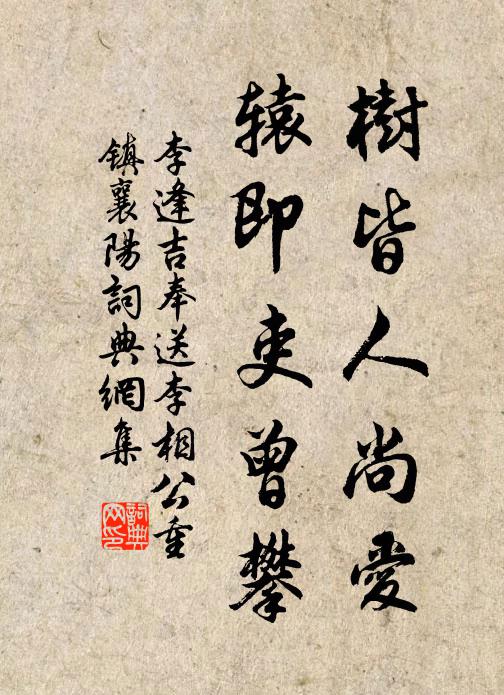 樹皆人尚愛
辕即吏曾攀
李逢吉奉送李相公重
鎮襄陽詞典網集
詞典
网印